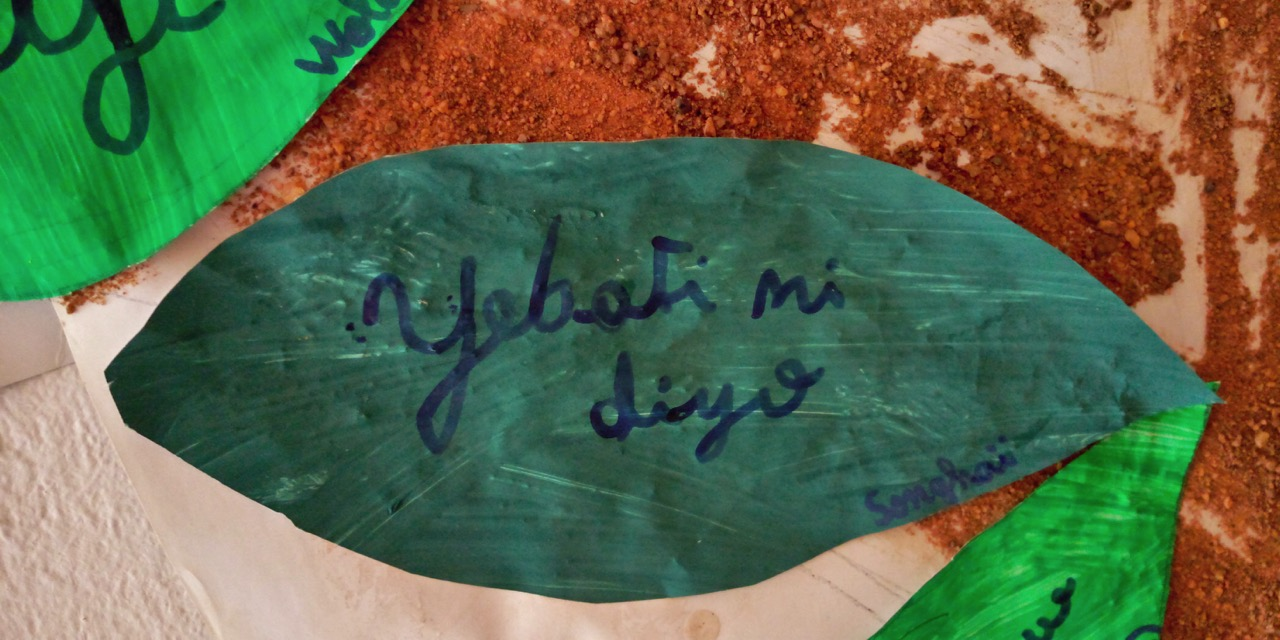 Yebati ni
diyo
Songhaï